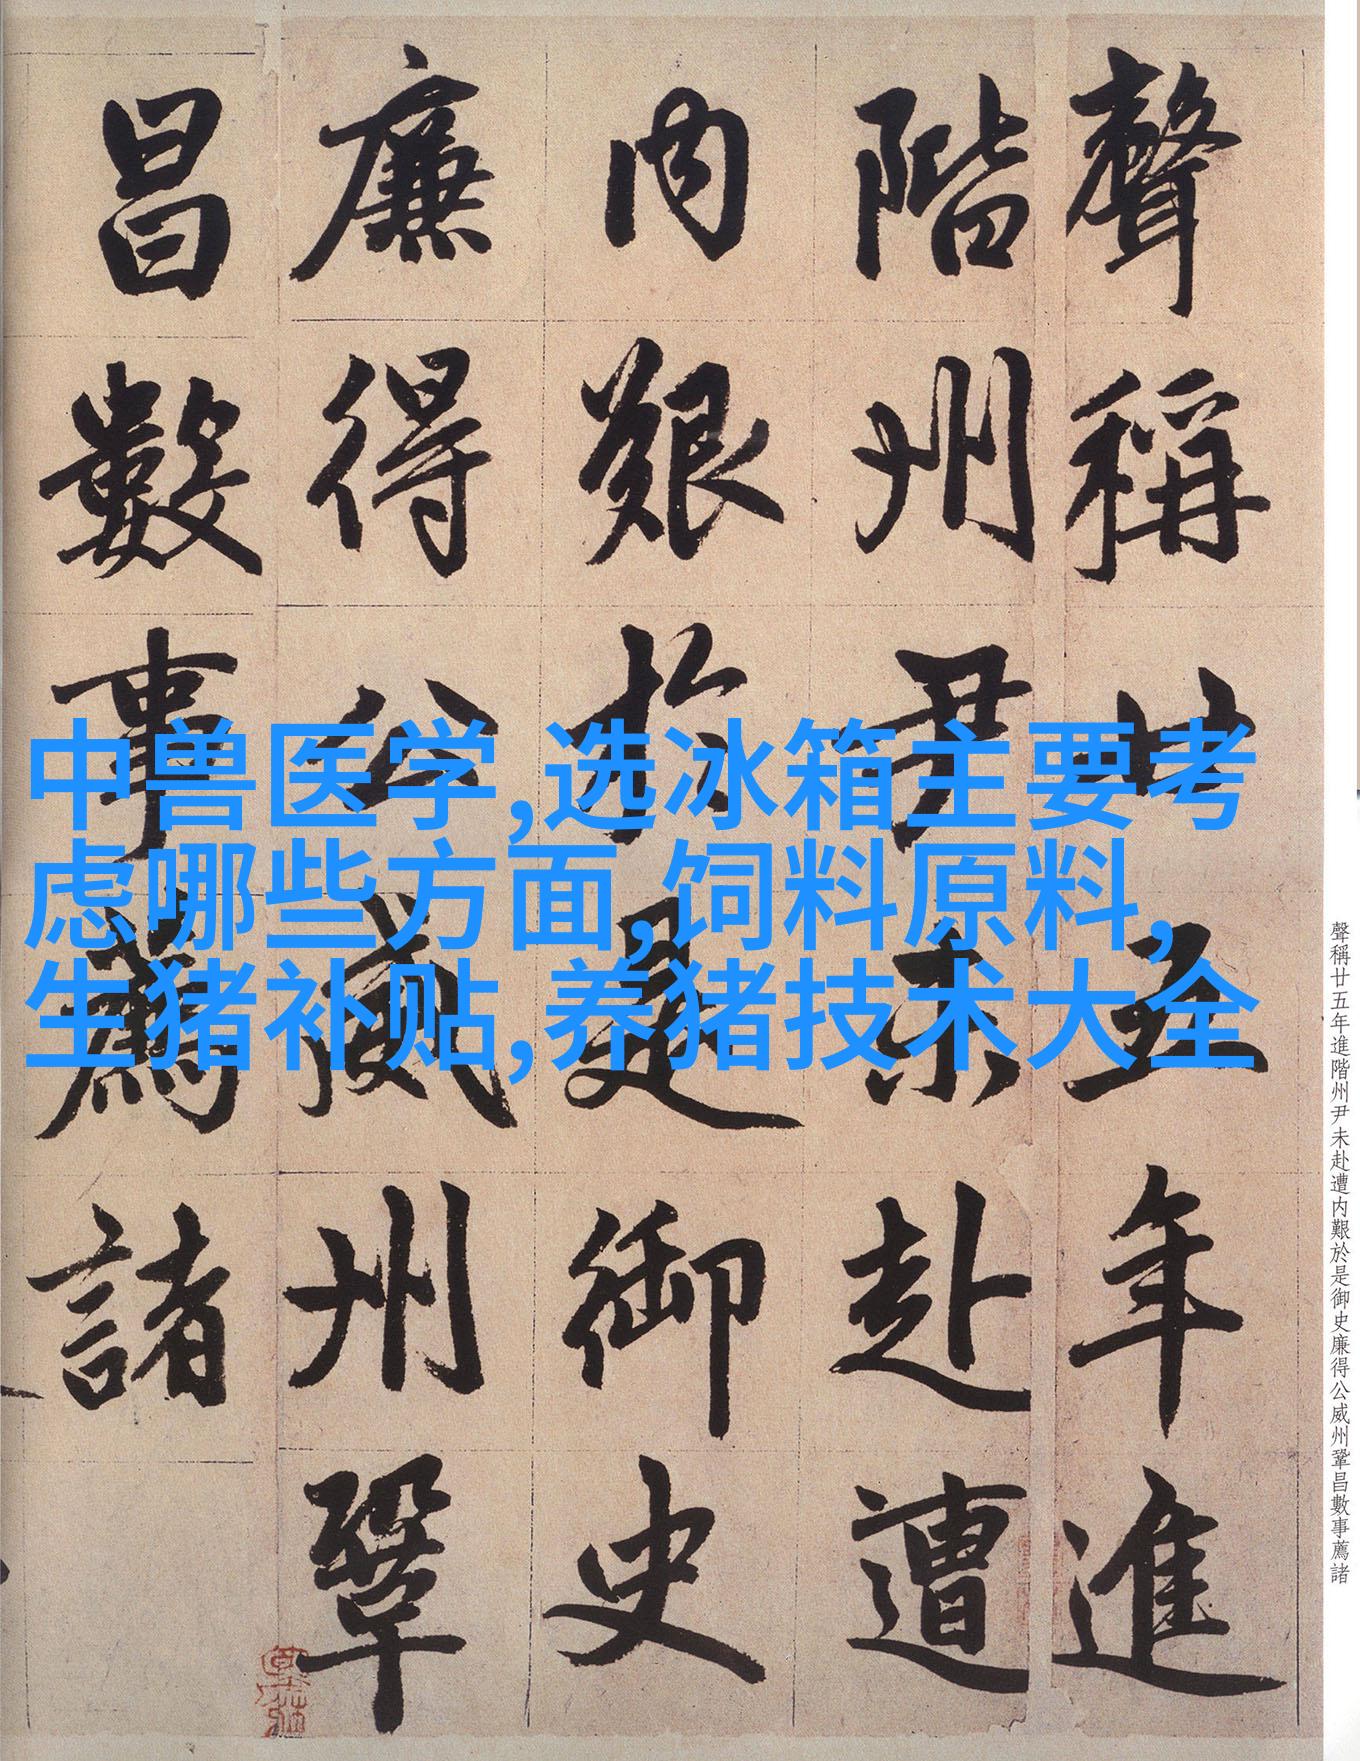 聲稱廿五年進
階州尹未赴遭
内艱於是御史
廉得公威州鞏
昌數事薦諸
中兽医学,选冰箱主要考
虑哪些方面,饲料原料,
生猪补贴,养猪技术大全
聲稱廿五年進階州尹未赴遭内艱於是御史廉得公威州鞏昌數事薦諸